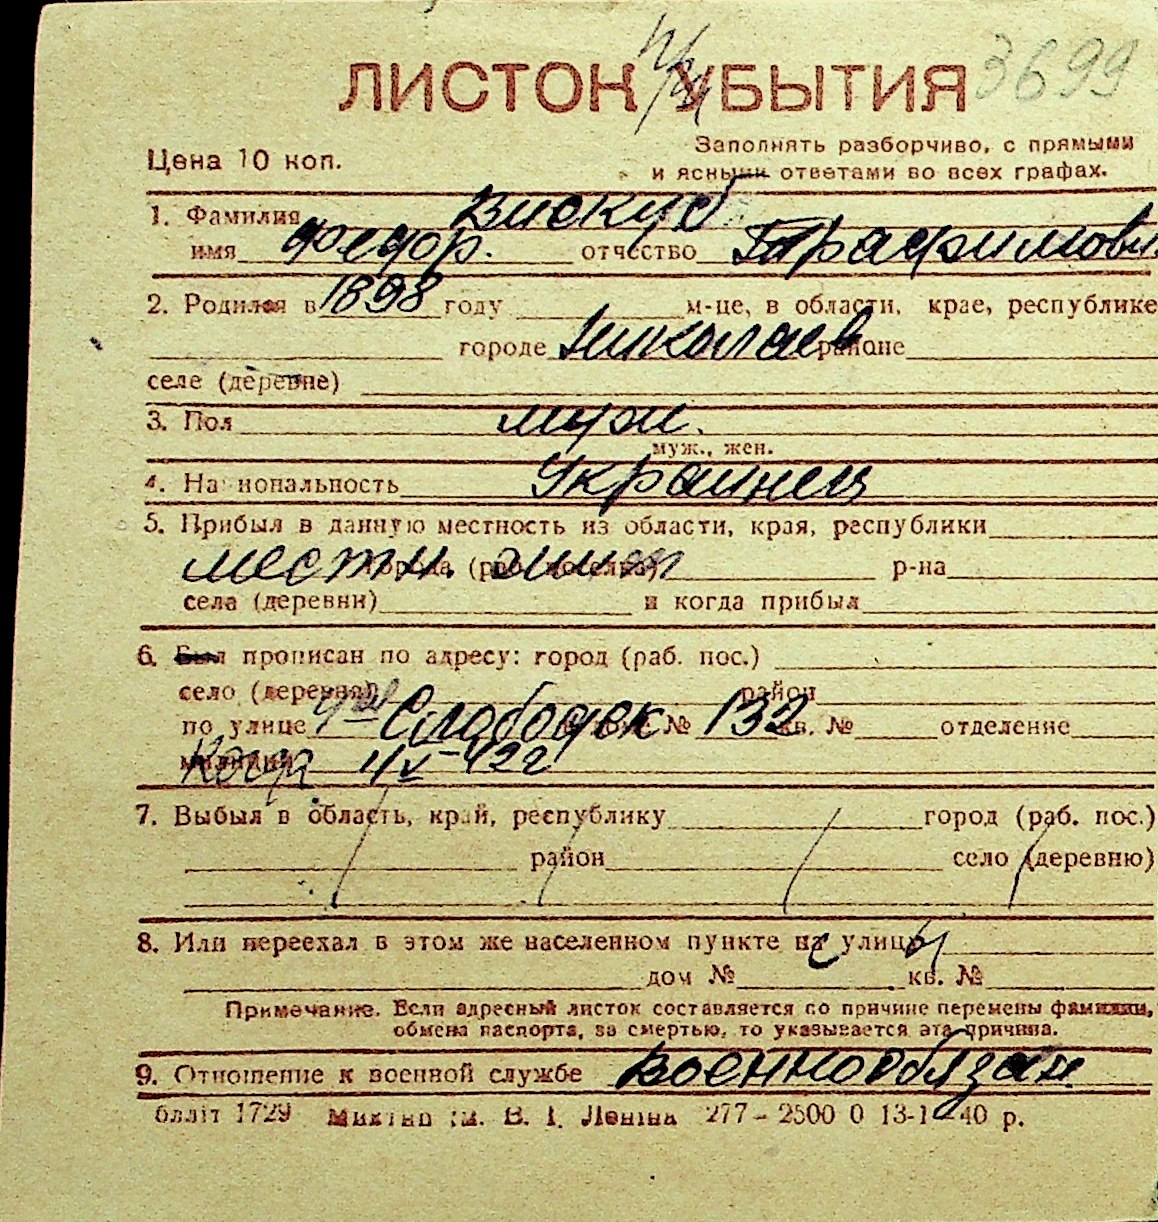 ЛИСТОК УБЫТИЯ 3699
Цена 10 коп.
Заполнять разборчиво, с прямыми
и ясными ответами во всех графах.
1. Фамилия Вискуб
имя Федор. отчество Трафимови
2. Родился в 1898 году м-це, в области, крае, республике
городе Николаев районе
селе (деревне)
3. Пол муж.
муж., жен.
4. Национальность Украинец
5. Прибыл в данную местность из области, края, республики
местн. жит города (раб. поселка) р-на
села (деревни) и когда прибыл
6. Был прописан по адресу: город (раб. пос.)
село (деревня) район
по улице Слободск № 132 кв. № отделение
милиции Когда 4/V-42г
7. Выбыл в область, край, республику город (раб. пос.)
район село (деревню)
8. Или переехал в этом же населенном пункте на улицу
дом № кв. №
Примечание. Если адресный листок составляется по причине перемены фамилии,
обмена паспорта, за смертью, то указывается эта причина.
9. Отношение к военной службе военнообязан
1729 В. І. Леніна 277-2500 0 40 р.